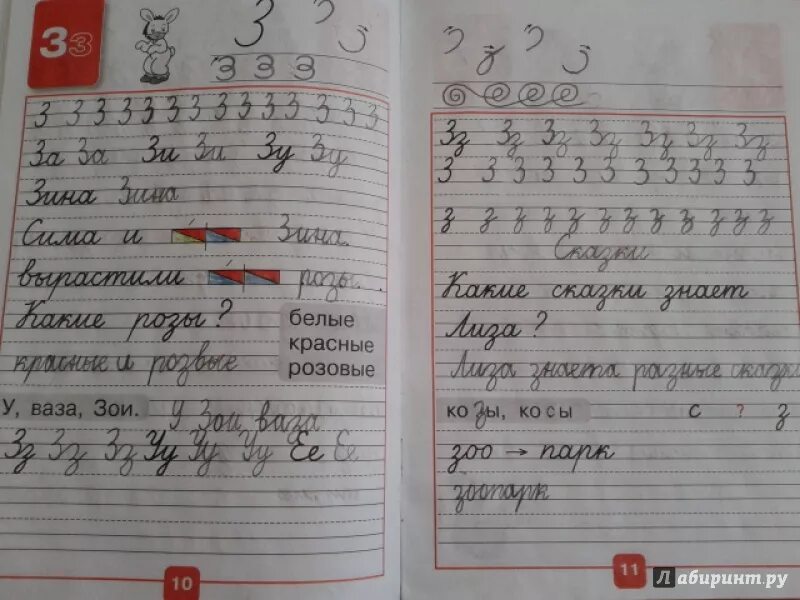 Зз
З
З З З
З З З З З З З З З З З З З З З
За За Зи Зи Зу Зу
Зина Зина
Сима и Зина
вырастили розы.
Какие розы?
белые
красные
розовые
красные и розвые
У, ваза, Зои. У Зои ваза
Зз Зз Зз Уу Уу Уу Ее Ее
10
Зз Зз Зз Зз Зз Зз Зз
З З З З З З З З З З З
з з з з з з з з з з з з
Сказки
Какие сказки знает
Лиза?
Лиза знаета разные сказки
ко зы, ко сы с ? з
зоо → парк
зоопарк
11
Лабиринт.ру